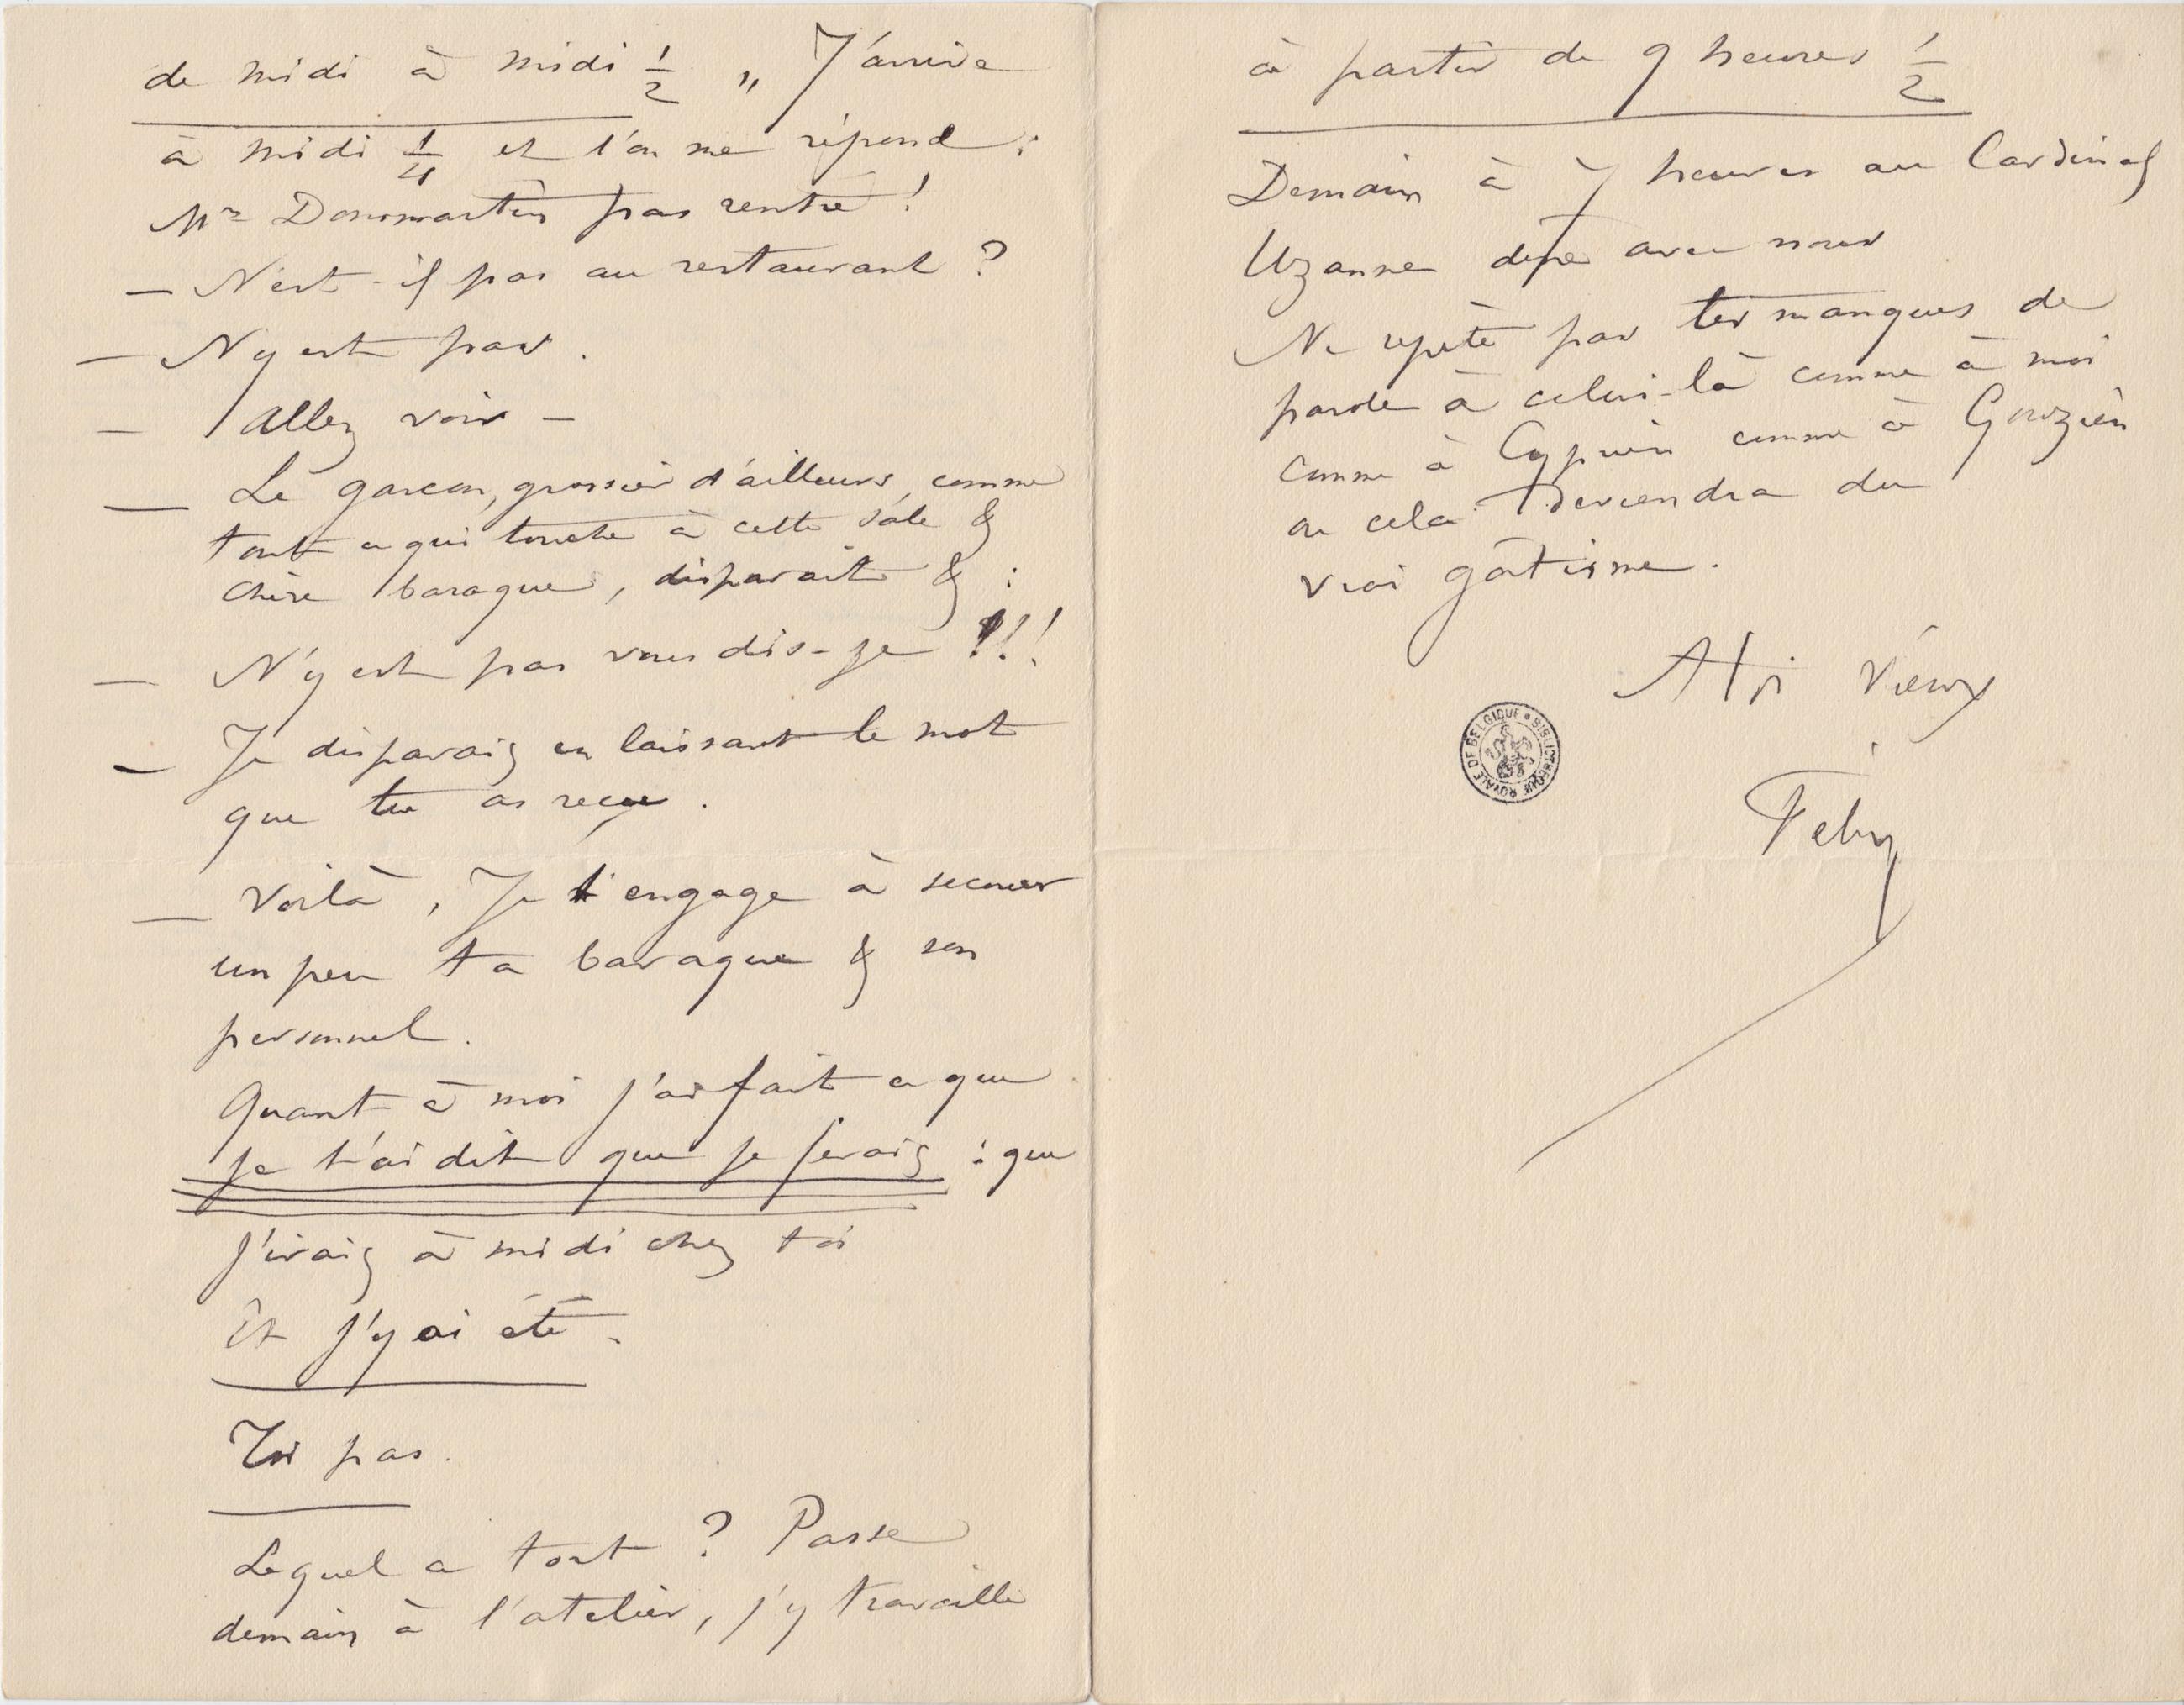 de midi à midi ½ „ J'arrive
à midi ¼ et l'on me répond :
Mr Dommartin pas rentré !
— N'est-il pas au restaurant ?
— N'y est pas.
— Allez voir —
— Le garcon, grossier d'ailleurs, comme
tout ce qui touche à cette sale &
chère baraque, disparait & :
— N'y est pas vous dis-je !!!
— Je disparais en laissant le mot
que tu as reçu.
— Voilà, Je t'engage à secouer
un peu ta baraque & son
personnel.
Quant à moi j'ai fait ce que
je t'ai dit que je ferais : que
j'irais à midi chez toi
Et j'y ai été.
Toi pas.
Lequel a tort ? Passe
demain à l'atelier, j'y travaille
à partir de 9 heures ½
Demain à 7 heures au Cardinal
Uzanne dîne avec nous
Ne repète pas tes manques de
parole à celui-là comme à moi
comme à Cyprien comme à Gouzien
ou cela deviendra du
vrai gâtisme.
A toi vieux
Fély
BIBLIOTHÈQUE ROYALE DE BELGIQUE